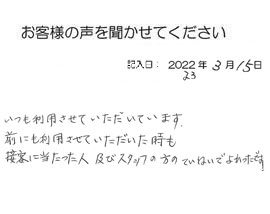 お客様の声を聞かせてください
記入日: 2022年 3月 15日
23
いつも利用させていただいています。
前にも利用させていただいた時も
接客に当たった人 及びスタッフの方のていねいでよかったです!